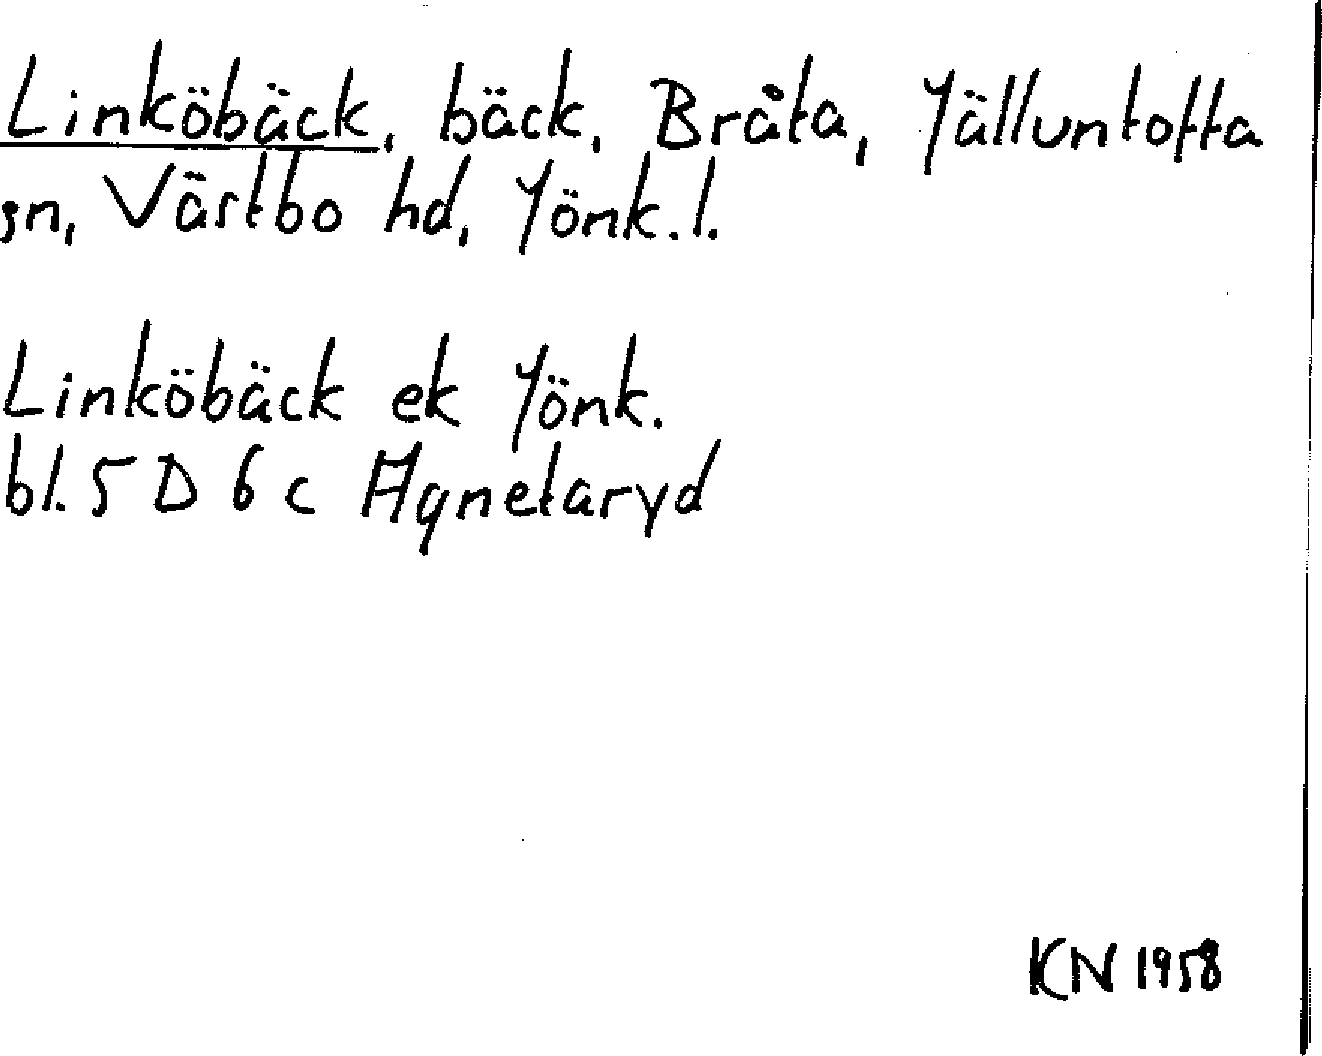 Linköbäck, bäck, Bråta, Jälluntofta
sn, Västbo hd, Jönk.l.
Linköbäck ek Jönk.
bl. 5 D 6 c Agnetaryd
KN 1958